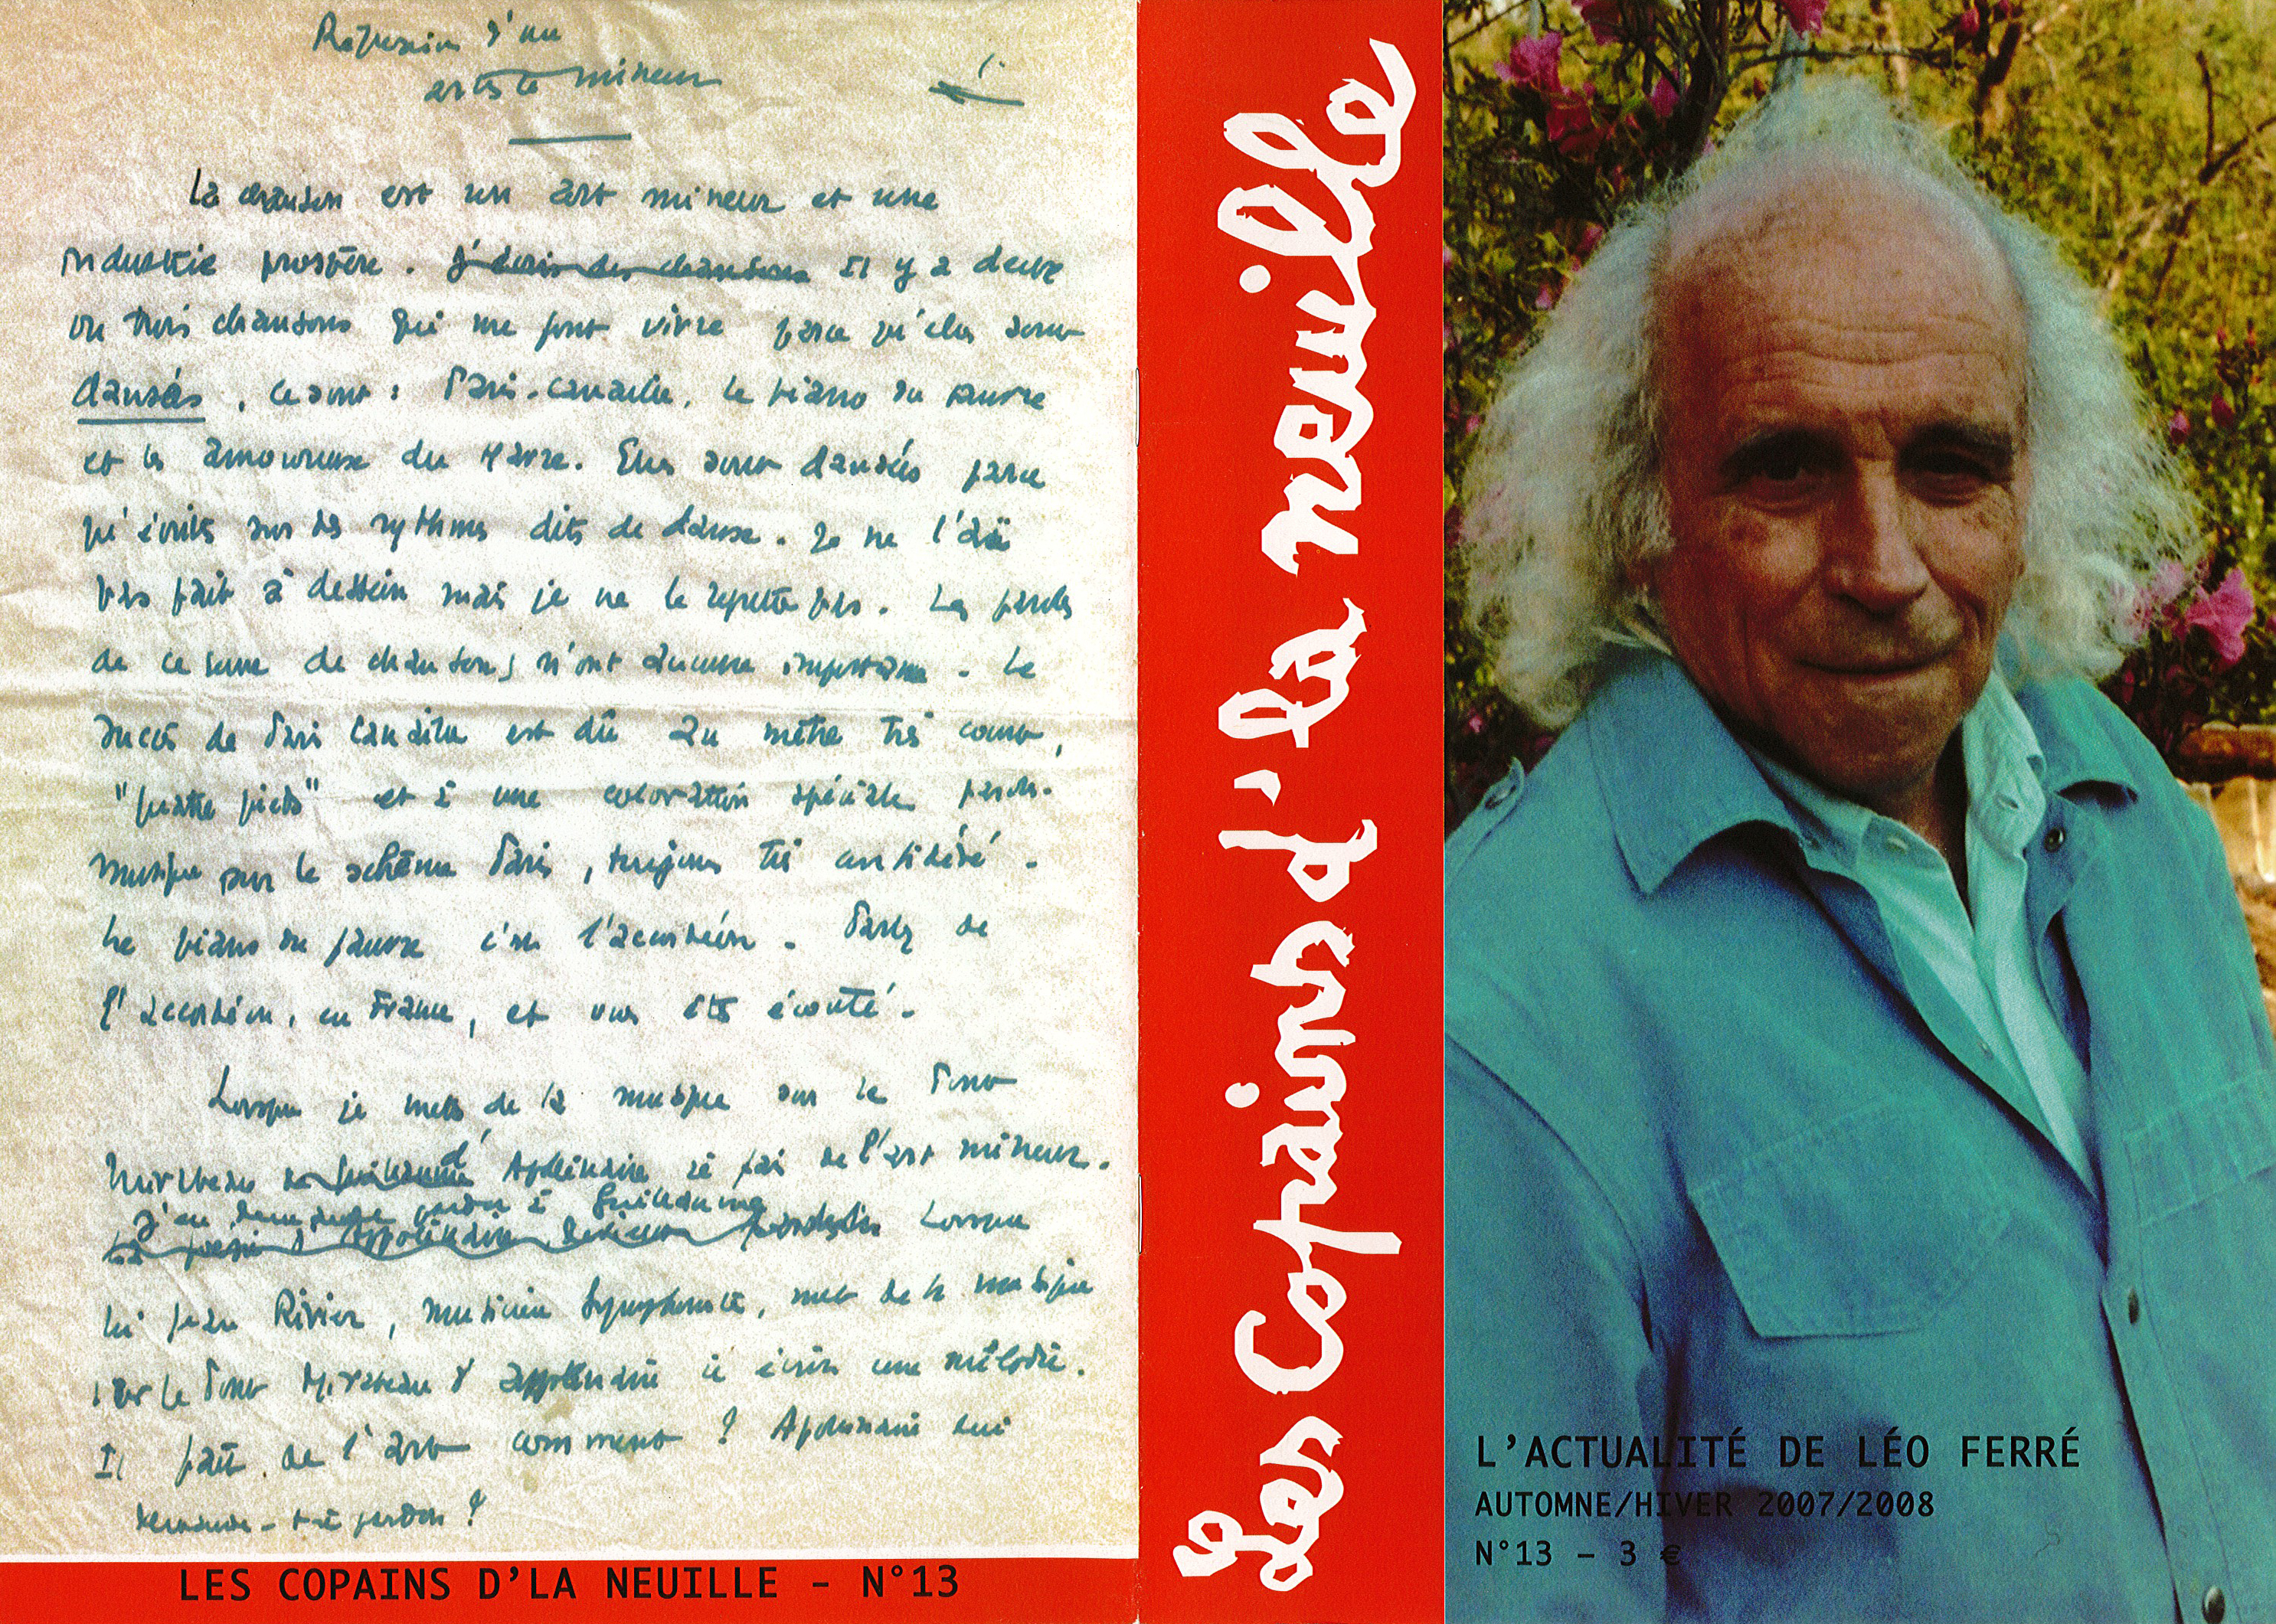 Réflexions d'un
artiste mineur
1.
La chanson est un art mineur et une
industrie prospère. J'écris des chansons Il y a deux
ou trois chansons qui me font vivre parce qu'elles sont
dansées, ce sont : Paris-Canaille, le piano du pauvre
et les amoureux du Havre. Elles sont dansées parce
qu'écrites sur des rythmes dits de danse. Je ne l'ai
pas fait à dessein mais je ne le regrette pas. Les paroles
de ce genre de chansons n'ont aucune importance. Le
succès de Paris Canaille est dû au mètre très court,
"quatre pieds" et à une coloration spéciale paroles-
musique sur le schéma Paris, toujours très considéré.
Le piano du pauvre c'est l'accordéon. Parlez de
l'accordéon, en France, et vous êtes écouté.
Lorsque je mets de la musique sur le Pont
Mirabeau de Guillaume d'Apollinaire je fais de l'art mineur.
J'en demande pardon à Guillaume
La poésie d'Appolinaire Lorsque
lui Jean Rivier, musicien symphoniste, met de la musique
sur le Pont Mirabeau d'Appolinaire il écrit une mélodie.
Il fait de l'art comment ? Apollinaire lui
demande-t-il pardon ?
LES COPAINS D'LA NEUILLE – N°13
Les Copains d'la neuille
L'ACTUALITÉ DE LÉO FERRÉ
AUTOMNE/HIVER 2007/2008
N°13 – 3 €